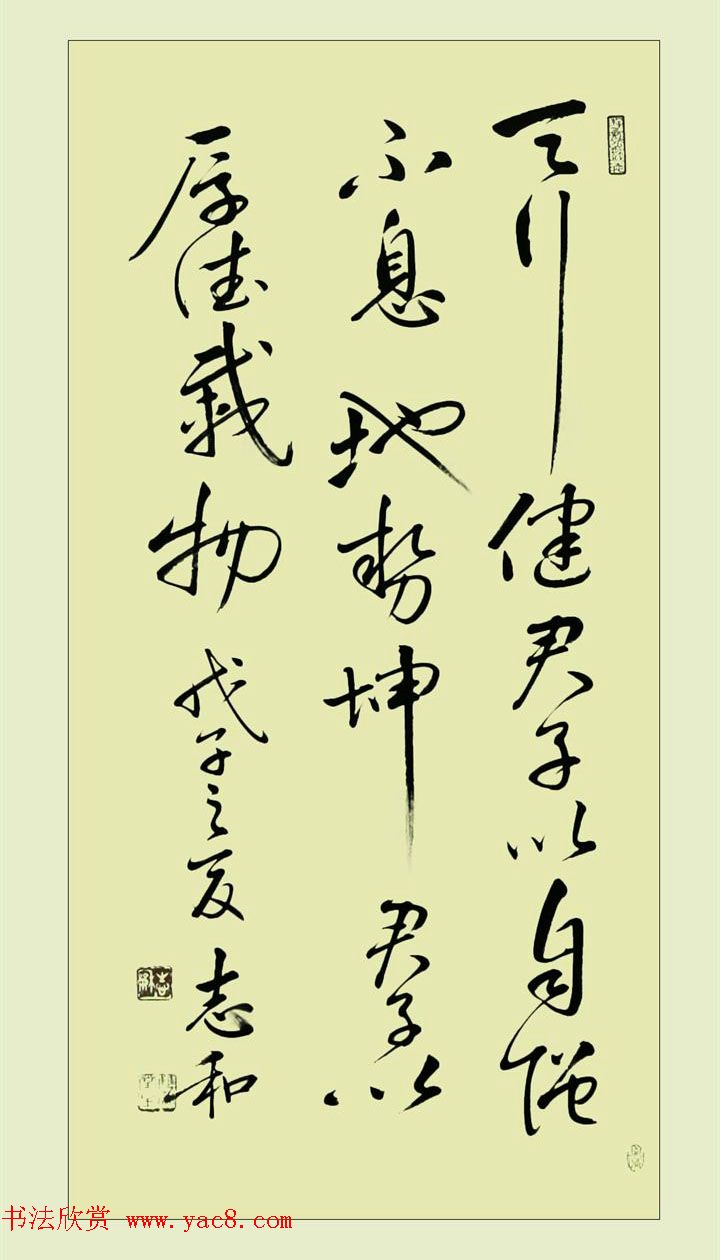 天行健君子以自强
不息地势坤君子以
厚德载物戊子之夏志和
书法欣赏 www.yac8.com